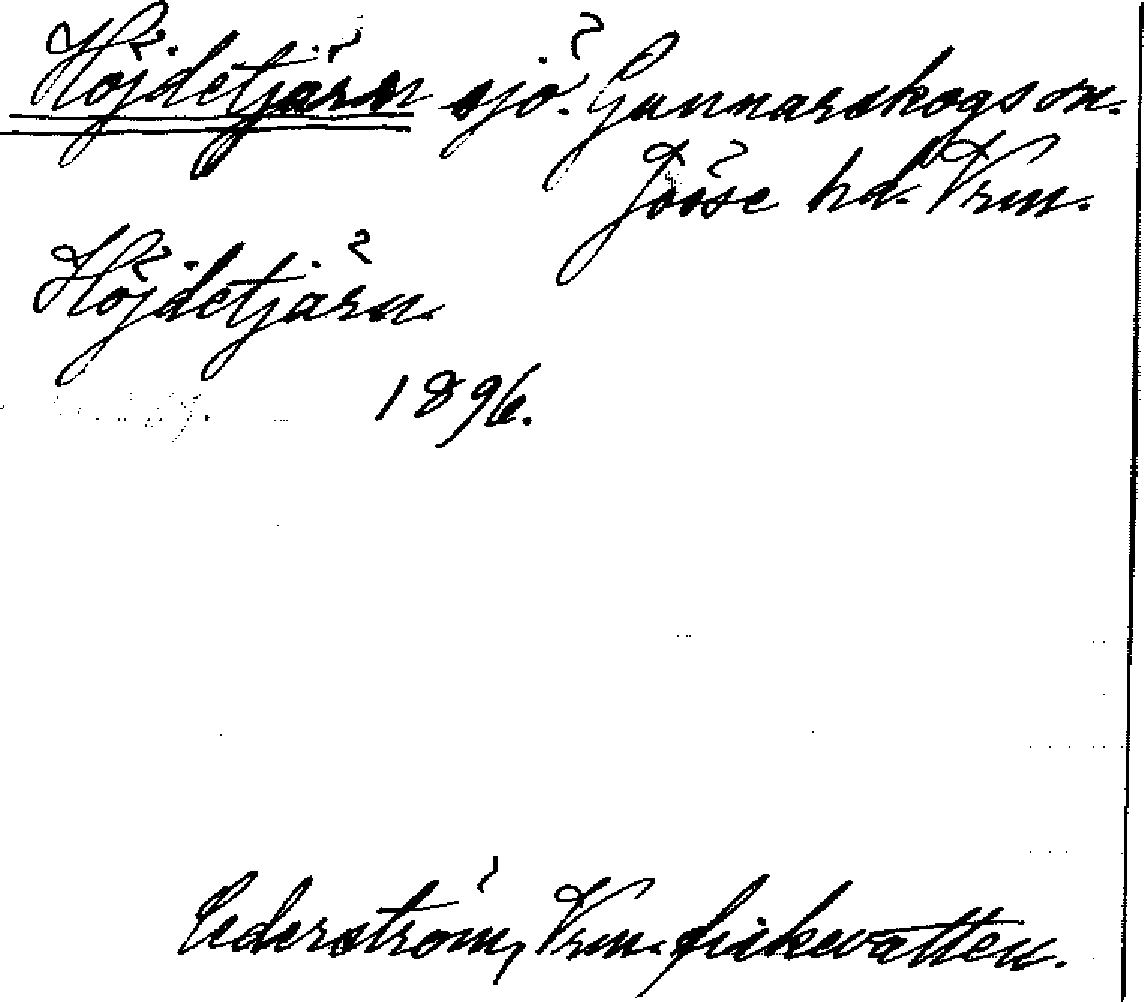 Höjdetjärn sjö. Gunnarskogs sn.
Jösse hd. Vrm.
Höjdetjärn
1896.
Cederström, Vrm. fiskevatten.